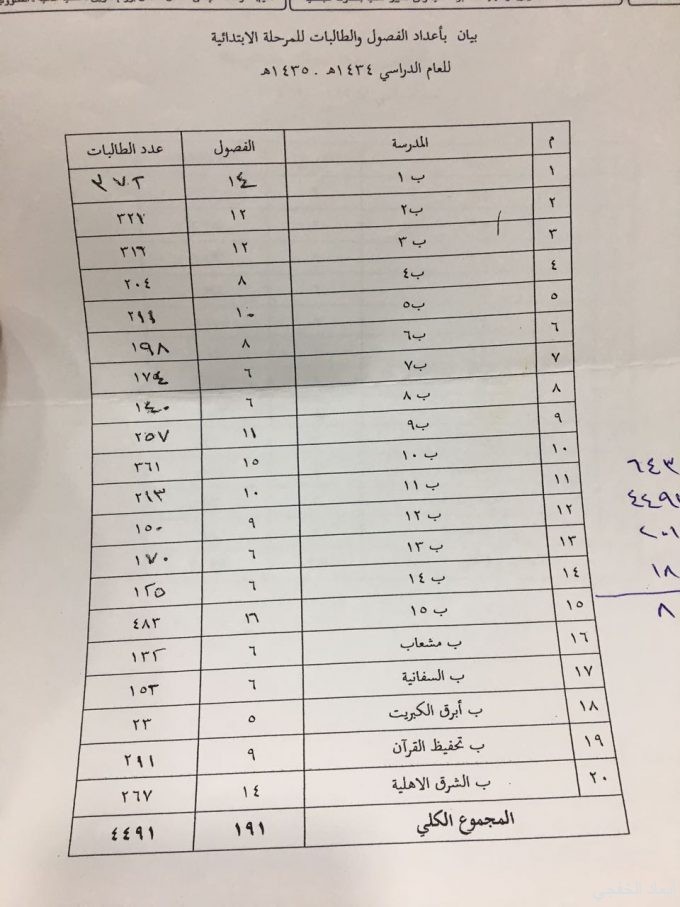 بيان بأعداد الفصول والطالبات للمرحلة الابتدائية
للعام الدراسي ١٤٣٤هـ . ١٤٣٥هـ
م المدرسة الفصول عدد الطالبات
١ ب ١ ١٤ ٣٧٢
٢ ب٢ ١٢ ٣٢٧
٣ ب ٣ ١٢ ٣١٦
٤ ب٤ ٨ ٢٠٤
٥ ب٥ ١٠
٦ ب٦ ٨ ١٩٨
٧ ب٧ ٦ ١٧٤
٨ ب ٨ ٦ ١٤٠
٩ ب٩ ١١ ٢٥٧
١٠ ب ١٠ ١٥ ٣٦١
١١ ب ١١ ١٠ ٢٩٣
١٢ ب ١٢ ٩ ١٥٠
١٣ ب ١٣ ٦ ١٧٠
١٤ ب ١٤ ٦ ١٢٥
١٥ ب ١٥ ١٦ ٤٨٣
١٦ ب مشعاب ٦ ١٣٢
١٧ ب السفانية ٦ ١٥٣
١٨ ب أبرق الكبريت ٥ ٢٣
١٩ ب تحفيظ القرآن ٩ ٢٩١
٢٠ ب الشرق الاهلية ١٤ ٢٦٧
المجموع الكلي ١٩١ ٤٤٩١
٦٤٣
٤٤٩١
٢٠١
١٨
٨